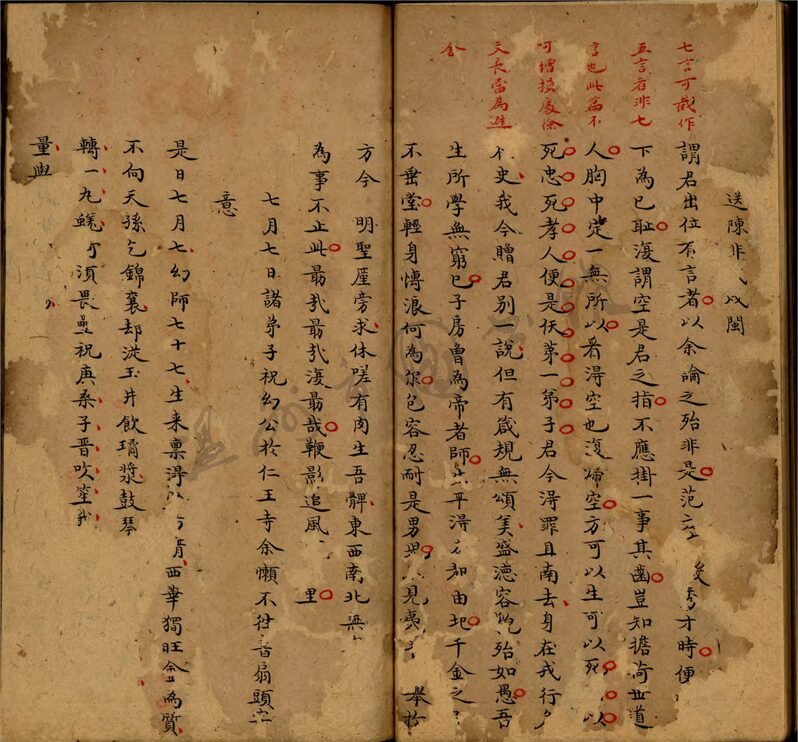 送陳非以閩
七言可哉作
五言者非七
言也此篇不
可增損處徐
文長當為避
舍
謂君出位有言者以余論之殆非是范秀才時便
下為已恥復謂空是君之指不應掛一事其齒豈知擔荷世道
人胸中定一無所以看得空也復歸空方可以生可以死以
死忠死孝人便是仸第一弟子君今得罪且南去身在戎行
史我今贈君別一說但有箴規無頌美盛德容貌殆如愚吾
生所學無窮已子房曾為帝者師平得知由圯千金之
不垂堂輕身慱浪何為尔包容忍耐是男見夷舉於
方今 明聖屋旁求休嗟有肉生吾髀東西南北
為事不止此最哉最哉復最哉鞭影追風里
七月七日諸弟子祝幻公於仁王寺余懶不往書扇頭
意
是日七月七幻師七十七生来稟淂西華獨旺金為質
不向天孫乞錦襄却從玉井飲璚漿鼓琴
轉一九須畏壘祝庚桑子晋吹笙
量與